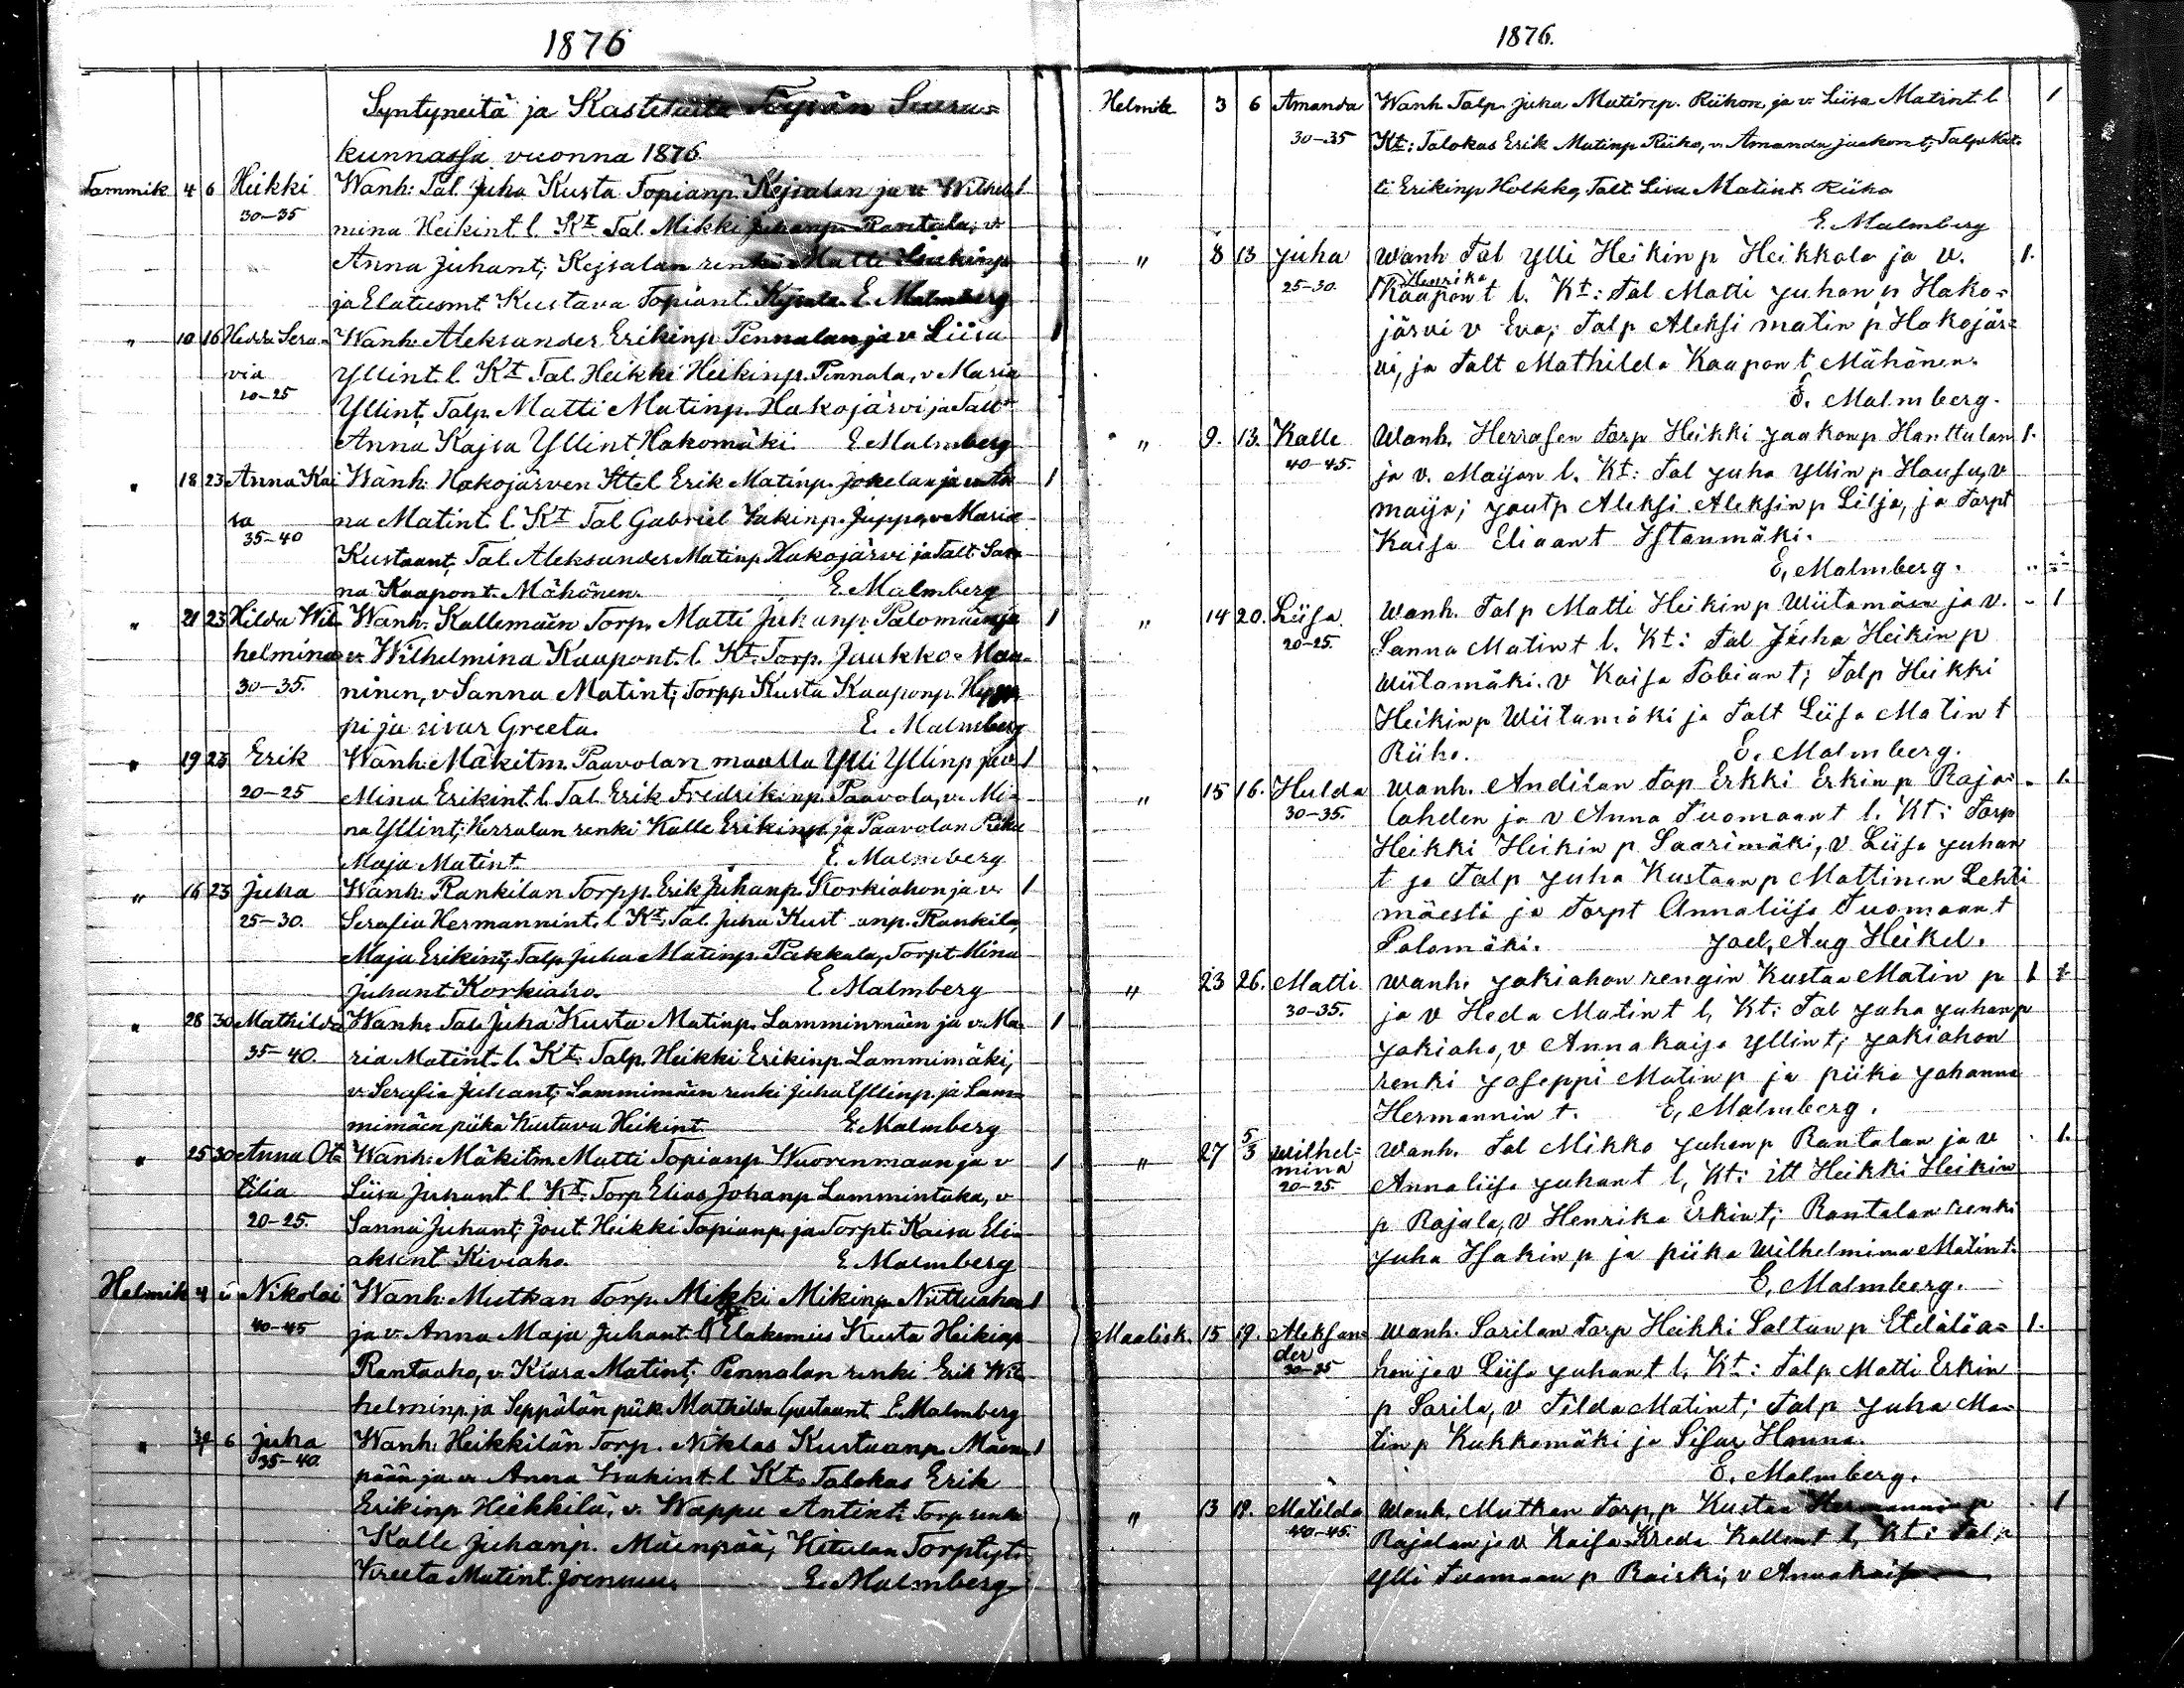 1876
Syntyneitä ja Kastetuita Töysän Seura=
kunnassa vuonna 1876
Tammik 4 6 Heikki Wanh: Tal. Juha Kusta Topianp. Kejsalan ja v. Wilhel- 1
30-35 mina Heikint. l. Kt. Tal. Mikki Juhanp. Rantala, v.
Anna Juhant; Kejsalan renki Matti Isakinp
ja Elatusmt Kustava Topiant. Kejsala. E. Malmberg
" 10 16 Hedda Sera- Wanh. Aleksander Erikinp. Pennalan ja v. Liisa 1
via Yllint. l. Kt Tal. Heikki Heikinp. Pennala, v. Maria
20-25 Yllint, Talp. Matti Matinp. Hakojärvi ja Talt
Anna Kajsa Yllint, Hakomäki. E Malmberg
" 18 23 Anna Kai Wanh: Hakojärven Ittel Erik Matinp. Jokelan ja v. 1
sa na Matint. l. Kt Tal Gabriel Isakinp. Juppo, v. Maria
35-40 Kustaant, Tal. Aleksander Matinp Hakojärvi ja Talt San
na Kaapont. Mähönen. E. Malmberg
" 21 23 Hilda Wil- Wanh. Kallemäen Torp. Matti Juhanp. Palomäen ja 1
helmina v. Wilhelmina Kaapont. l. Kt. Torp. Jaakko Man-
30-35. ninen, v Sanna Matint; Torpp Kusta Kaaponp.
pi ja sisar Greeta. E. Malmberg
" 19 23 Erik Wanh: Mäkitm. Paavolan maalla Ylli Yllinp ja v. 1
20-25 Mina Erikint. l. Tal. Erik Fredrikinp. Paavola, v. Mi-
na Yllint; Kerralan renki Kalle Erikinp. ja Paavolan Piika
Maja Matint. E. Malmberg
" 16 23 Juha Wanh: Rankilan Torpp. Erik Juhanp. Korkiahon ja v. 1
25-30. Serafia Hermannint. l Kt. Tal. Juha Kust anp. Rankila,
Maja Erikint, Talp. Juha Matinp. Pakkala, Torpt Mina
Juhant Korkiaho. E. Malmberg
" 28 30 Mathilda Wanh: Tal. Juha Kusta Matinp. Lamminmäen ja v. Ma- 1
35-40. ria Matint. l. Kt. Talp. Heikki Erikinp. Lammimäki,
v. Serafia Juhant; Lammimäen renki Juha Yllinp. ja Lam-
mimäen piika Kustava Heikint. E Malmberg
" 25 30 Anna Ot- Wanh: Mäkitm. Matti Topianp Wuorenmaan ja v 1
tilia Liisa Juhant. l. Kt. Torp Elias Johanp Lammintaka, v
20-25. Sanna Juhant; Jout. Heikki Topianp. ja Torpt. Kaisa Eli-
aksent Kiviaho. E Malmberg
Helmik 4 6 Nikolai Wanh: Mutkan Torp. Mikki Mikinp. Niittuahon 1
40-45 ja v. Anna Maja Juhant. l. Elakemies Kusta Heikinp
Rantaaho, v. Kiara Matint; Pennalan renki Erik Wil-
helminp. ja Seppälän piik. Mathilda Gustaant. E. Malmberg
" 6 Juha Wanh: Heikkilän Torp. Niklas Kustaanp. Mäen- 1
35-40. pään ja v. Anna Isakint. l Kt. Talokas Erik
Erikinp Heikkilä, v. Wappu Antint; Torp renki
Kalle Juhanp. Mäenpää, Kitulan Torptyt.
Kreeta Matint. Joensuu. E. Malmberg
1876.
Helmik 3 6 Amanda Wanh Talp. Juha Matinp. Riihon ja v. Liisa Matint. l 1
30-35 Kt: Talokas Erik Matinp Riiho, v. Amanda Jaakont; Talp. Mat-
ti Erikinp Holkko, Talt Lisa Matint. Riiho
E. Malmberg
" 8 13 Juha Wanh Tal Ylli Heikinp Heikkola ja v. 1.
Henrika
25-30. Kaapont l. Kt: Tal Matti Juhanp Hako=
järvi v Eva; Talp Aleksi Matinp Hakojär=
vi, ja Talt Mathilda Kaapont Mähönen.
E. Malmberg.
" 9. 13. Kalle Wanh. Herrasen Torp Heikki Jaakonp Hanttulan 1.
40-45. ja v. Maijan l. Kt: Tal Juha Yllinp Hausu, v
Maija; Joutp Aleksi Aleksinp Lilja, ja Torpt
Kaisa Eliaant Istanmäki.
E, Malmberg.
" 14 20. Liisa. Wanh. Talp Matti Heikinp Wiitamäen ja v. 1
20-25. Sanna Matint l. Kt: Tal Juha Heikinp
Wiitamäki. v Kaisa Tobiant; Talp Heikki
Heikinp Wiitamäki ja Talt Liisa Matint
Riiho. E. Malmberg.
" 15 16. Hulda Wanh. Andilan Top Erkki Erkinp Raja= 1.
30-35. lahden ja v Anna Tuomaant l. Kt: Torp
Heikki Heikinp Saarimäki, v Liisa Juhan
t ja Talp Juha Kustaanp Mattinen Lehti
mäesti ja Torpt Annaliisa Tuomaant
Palomäki. Joel, Aug Heikel.
" 23 26. Matti Wanh. Jokiahon rengin Kustaa Matinp 1 1.
30-35. ja v Heda Matint l, Kt: Tal Juha Juhanp
Jokiaho, v Annakaisa Yllint; Jokiahon
renki Joseppi Matinp ja piika Johanna
Hermannint. E, Malmberg.
" 27 5/3 Wilhel= Wanh. Tal Mikko Juhanp Rantalan ja v 1.
mina
20-25. Annaliisa Juhant l, Kt: itt Heikki Heikin
p Rajala, v Henrika Erkint; Rantalan renki
Juha Isakinp ja piika Wilhelmina Matint.
E, Malmberg.
Maalisk. 15 19. Aleksan= Wanh. Sarilan Torp Heikki Saltunp Eteläa= 1.
der
30-35 hon ja v Liisa Juhant l. Kt: Talp Matti Erkin
p Sarila, v Tilda Matint; Talp Juha Ma=
tinp Kukkomäki ja Sisar Hanna.
E. Malmberg.
" 13 19. Matilda Wanh. Mutkan Torp,p Kustaa Hermanninp 1
40-45. Rajalan ja v Kaisa Kreda Kallent l, Kt: Talp
Ylli Tuomaanp Raiski, v Annakaisa